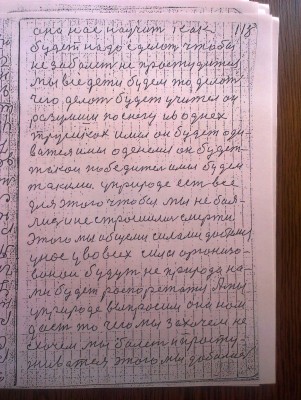 она нас научит как 118
будет надо сделат чтобы
не заболет не простудится
мы все дети будем то делат
чего делат будет учител он
разумши по снегу и в одних
трусиках и мы он будет оди-
ватся и мы оденемся он будет
такой победител и мы будем
такими. у природе ест все
для этого чтобы мы не боя-
лис и не строшилис смерти
этого мы общими силами добём
у нас у во всех силы
воной будут не природа на-
ми будет роспоретатся А мы
у природе выпросим она нам
даст то чего мы захочем не
схочем мы болет и просту-
живатся этого мы добьемся